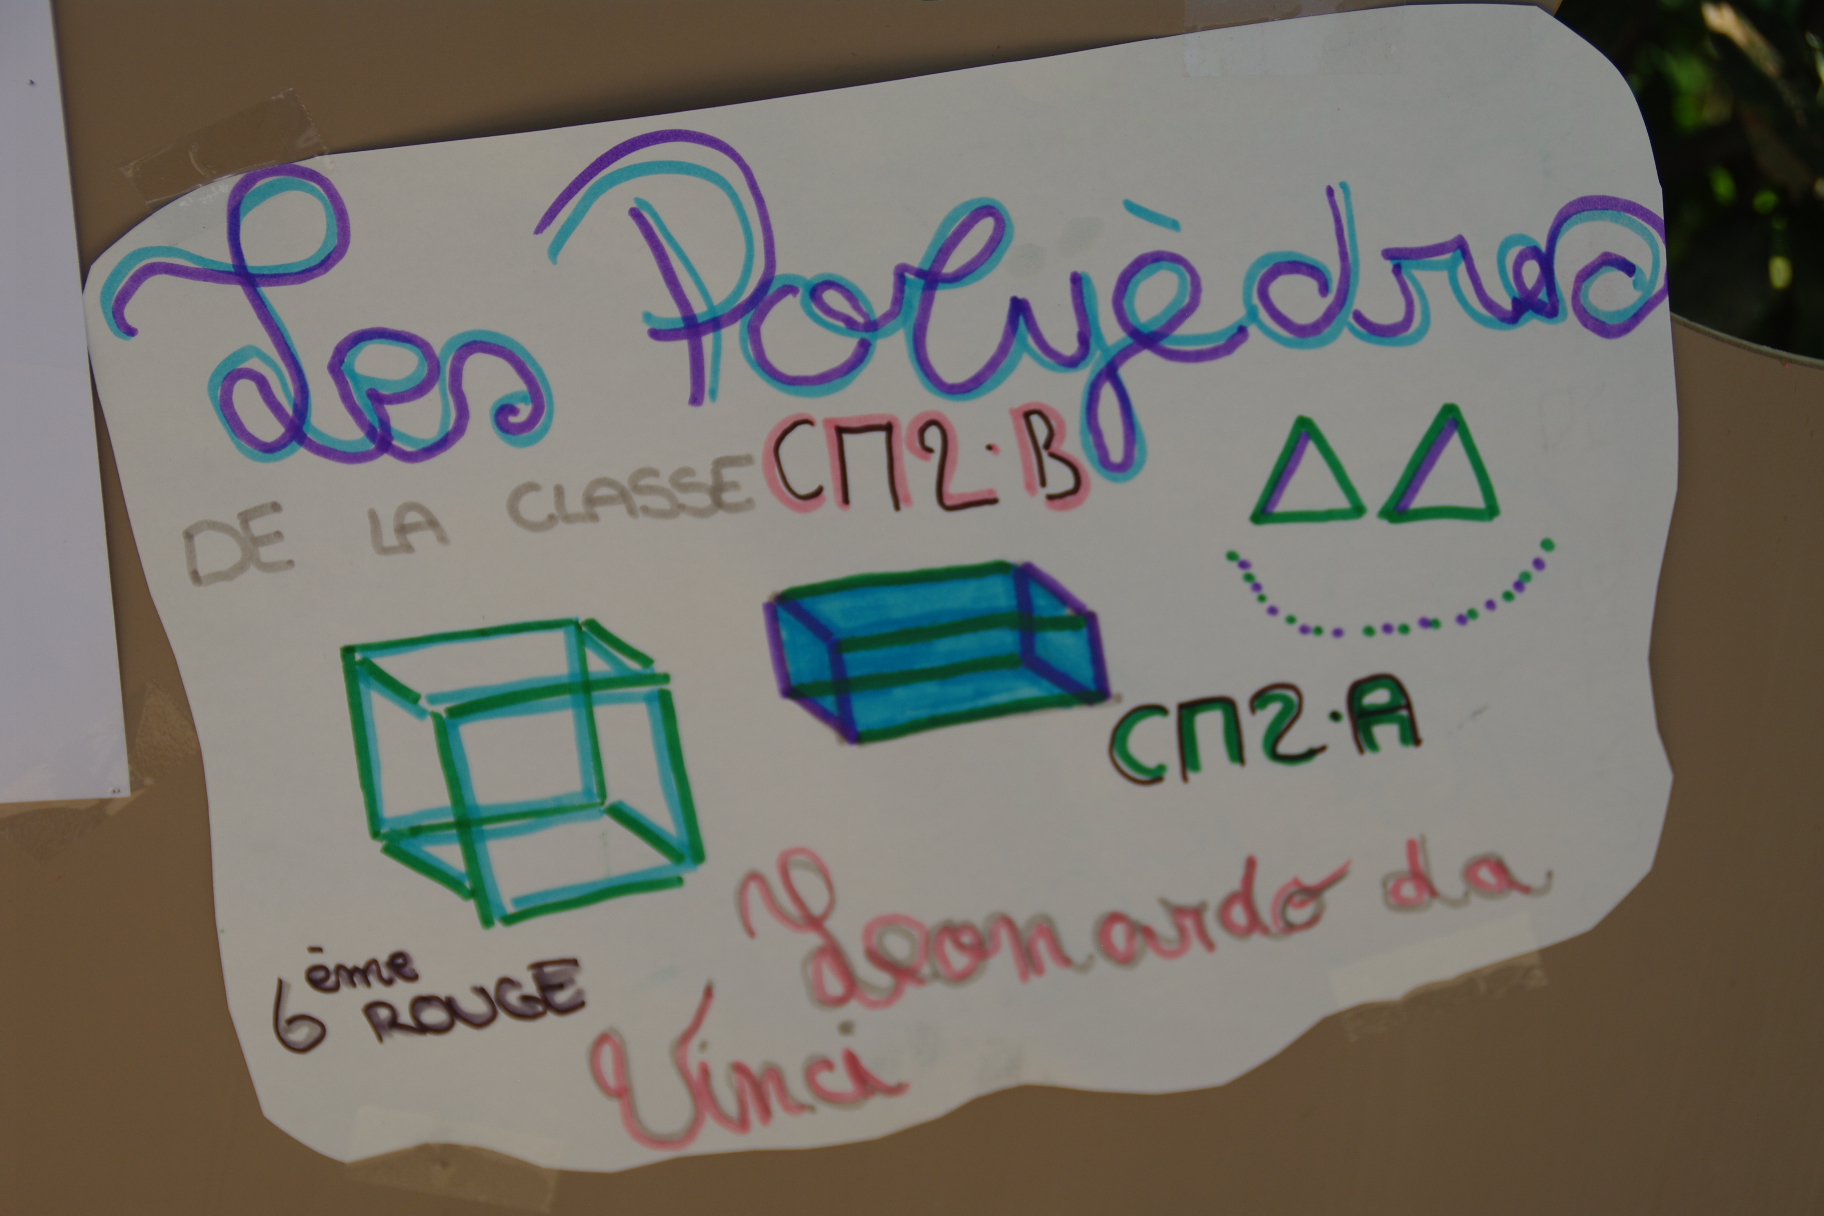 Les Polyèdres
DE LA CLASSE CM2·B
CM2·A
6ème ROUGE
Leonardo da
Vinci